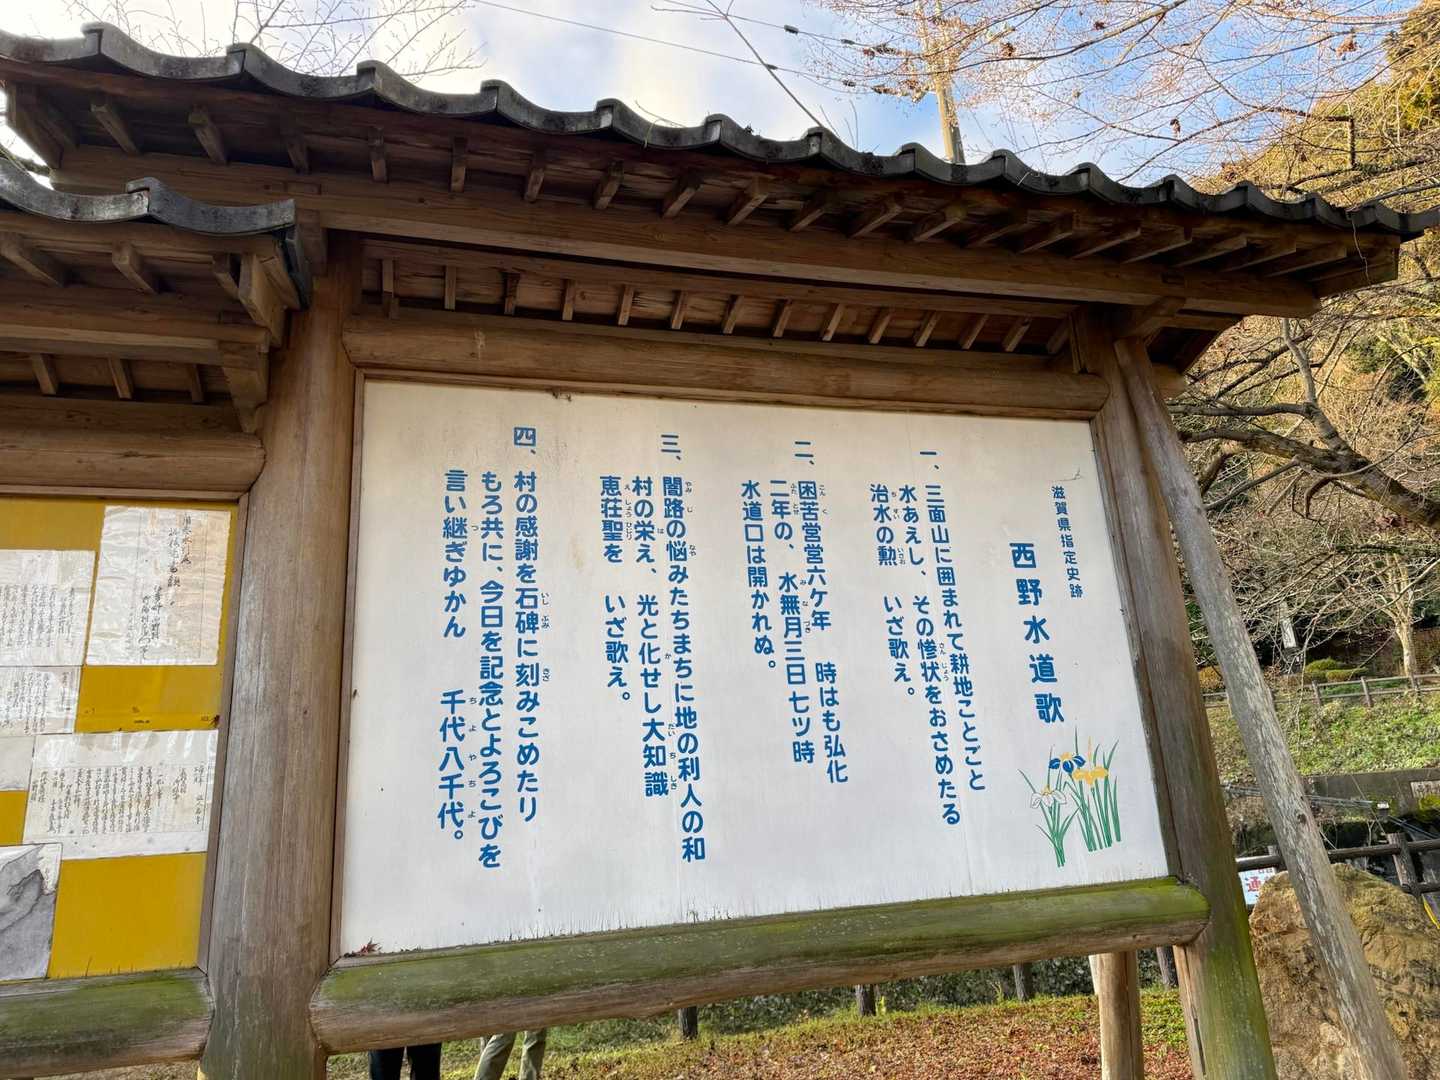 滋賀県指定史跡
西野水道歌
一、三面山に囲まれて耕地ことごと
水あえし、その惨状をおさめたる
治水の勲　いざ歌え。
二、困苦営営六ケ年　時はも弘化
二年の、水無月三日七ツ時
水道口は開かれぬ。
三、闇路の悩みたちまちに地の利人の和
村の栄え、光と化せし大知識
恵荘聖を　いざ歌え。
四、村の感謝を石碑に刻みこめたり
もろ共に、今日を記念とよろこびを
言い継ぎゆかん　千代八千代。